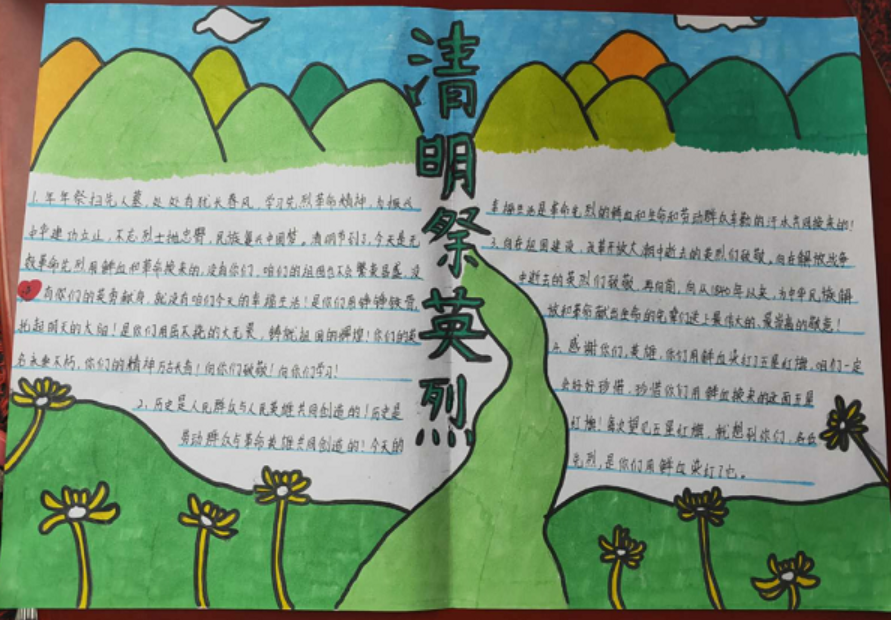 清明祭英烈
1.年年祭扫先人墓,处处犹长春风,学习先烈革命精神,为振兴
中华建功立业,不忘烈士抛忠骨,民族复兴中国梦。清明节到了,今天是无
数革命先烈用鲜血和革命换来的,没有你们,咱们的祖国也不会繁荣昌盛,没
有你们的英勇献身,就没有咱们今天的幸福生活!是你们用铮铮铁骨,
托起明天的太阳!是你们用屈不挠的大无畏,铸就祖国的辉煌!你们的英
名永垂不朽,你们的精神万古长青!向你们致敬!向你们学习!
2.历史是人民群众与人民英雄共同创造的!历史是
劳动群众与革命英雄共同创造的!今天的
幸福生活是革命先烈的鲜血和生命和劳动群众辛勤的汗水共同换来的!
3.向在祖国建设,改革开放大潮中逝去的英烈们致敬。向在解放战争
中逝去的英烈们致敬,再向前,向从1840年以来,为中华民族解
放和革命献出生命的先辈们送上最伟大的、最崇高的敬意!
4.感谢你们,英雄,你们用鲜血染红了五星红旗,咱们一定
会好好珍惜,珍惜你们用鲜血换来的这面五星
红旗!每次望见五星红旗,就想到你们,各位
先烈,是你们用鲜血染红了它。